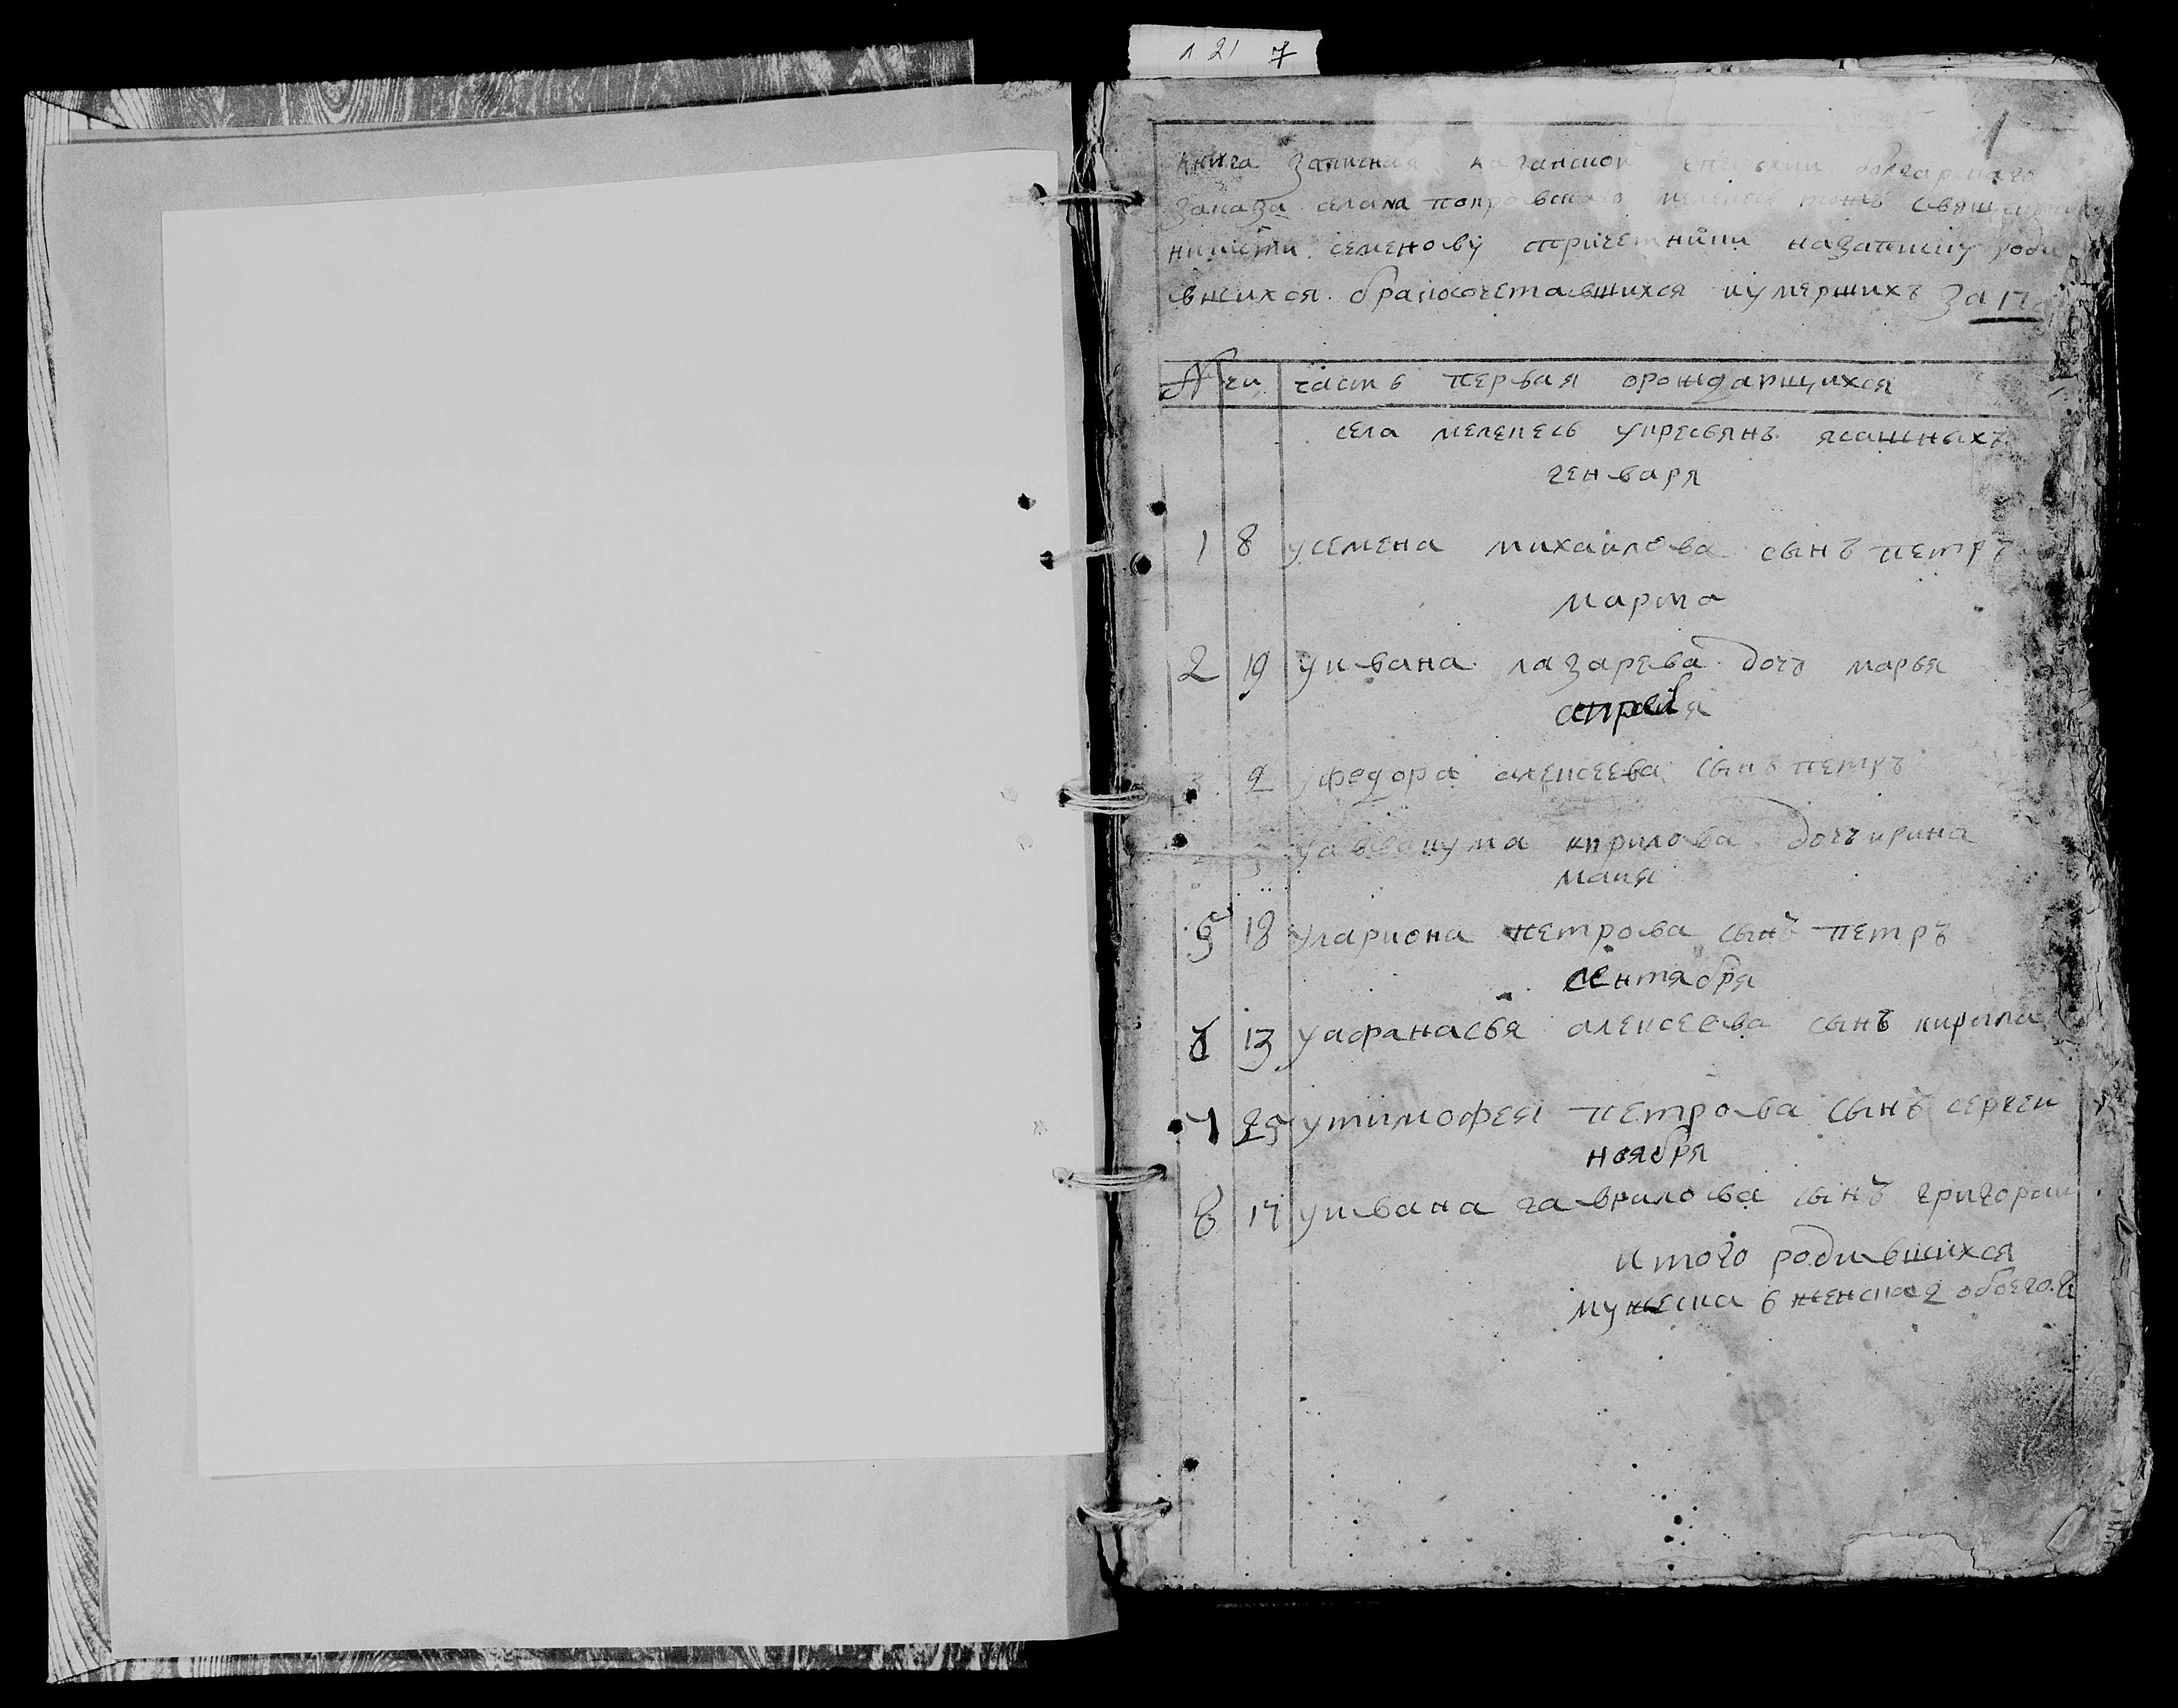 л 21 7
1
книга записная казанской епархии болгарскаго
заказа села покровскаго мелекесъ тожъ священнику
никити семенову спричетники назаписку роди
вшихся бракосочетавшихся иумершихъ за 17
№ чи часть первая орождающихся
села мелекесъ укресьянъ ясашныхъ
генваря
1 8 усемена михаилова сынъ петръ
марта
2 19 уивана лазарева дочь марья
апреля
3 2 уфедора алексеева сынъ петръ
уаввакума кирилова дочь ирина
маия
5 18 улариона петрова сынъ петръ
сентября
6 13 уафанасья алексеева сынъ кирила
7 25 утимофея петрова сынъ сергеи
ноября
8 17 уивана гаврилова сынъ григории
итого родившихся
мужеска 6 женска 2 обоего 8